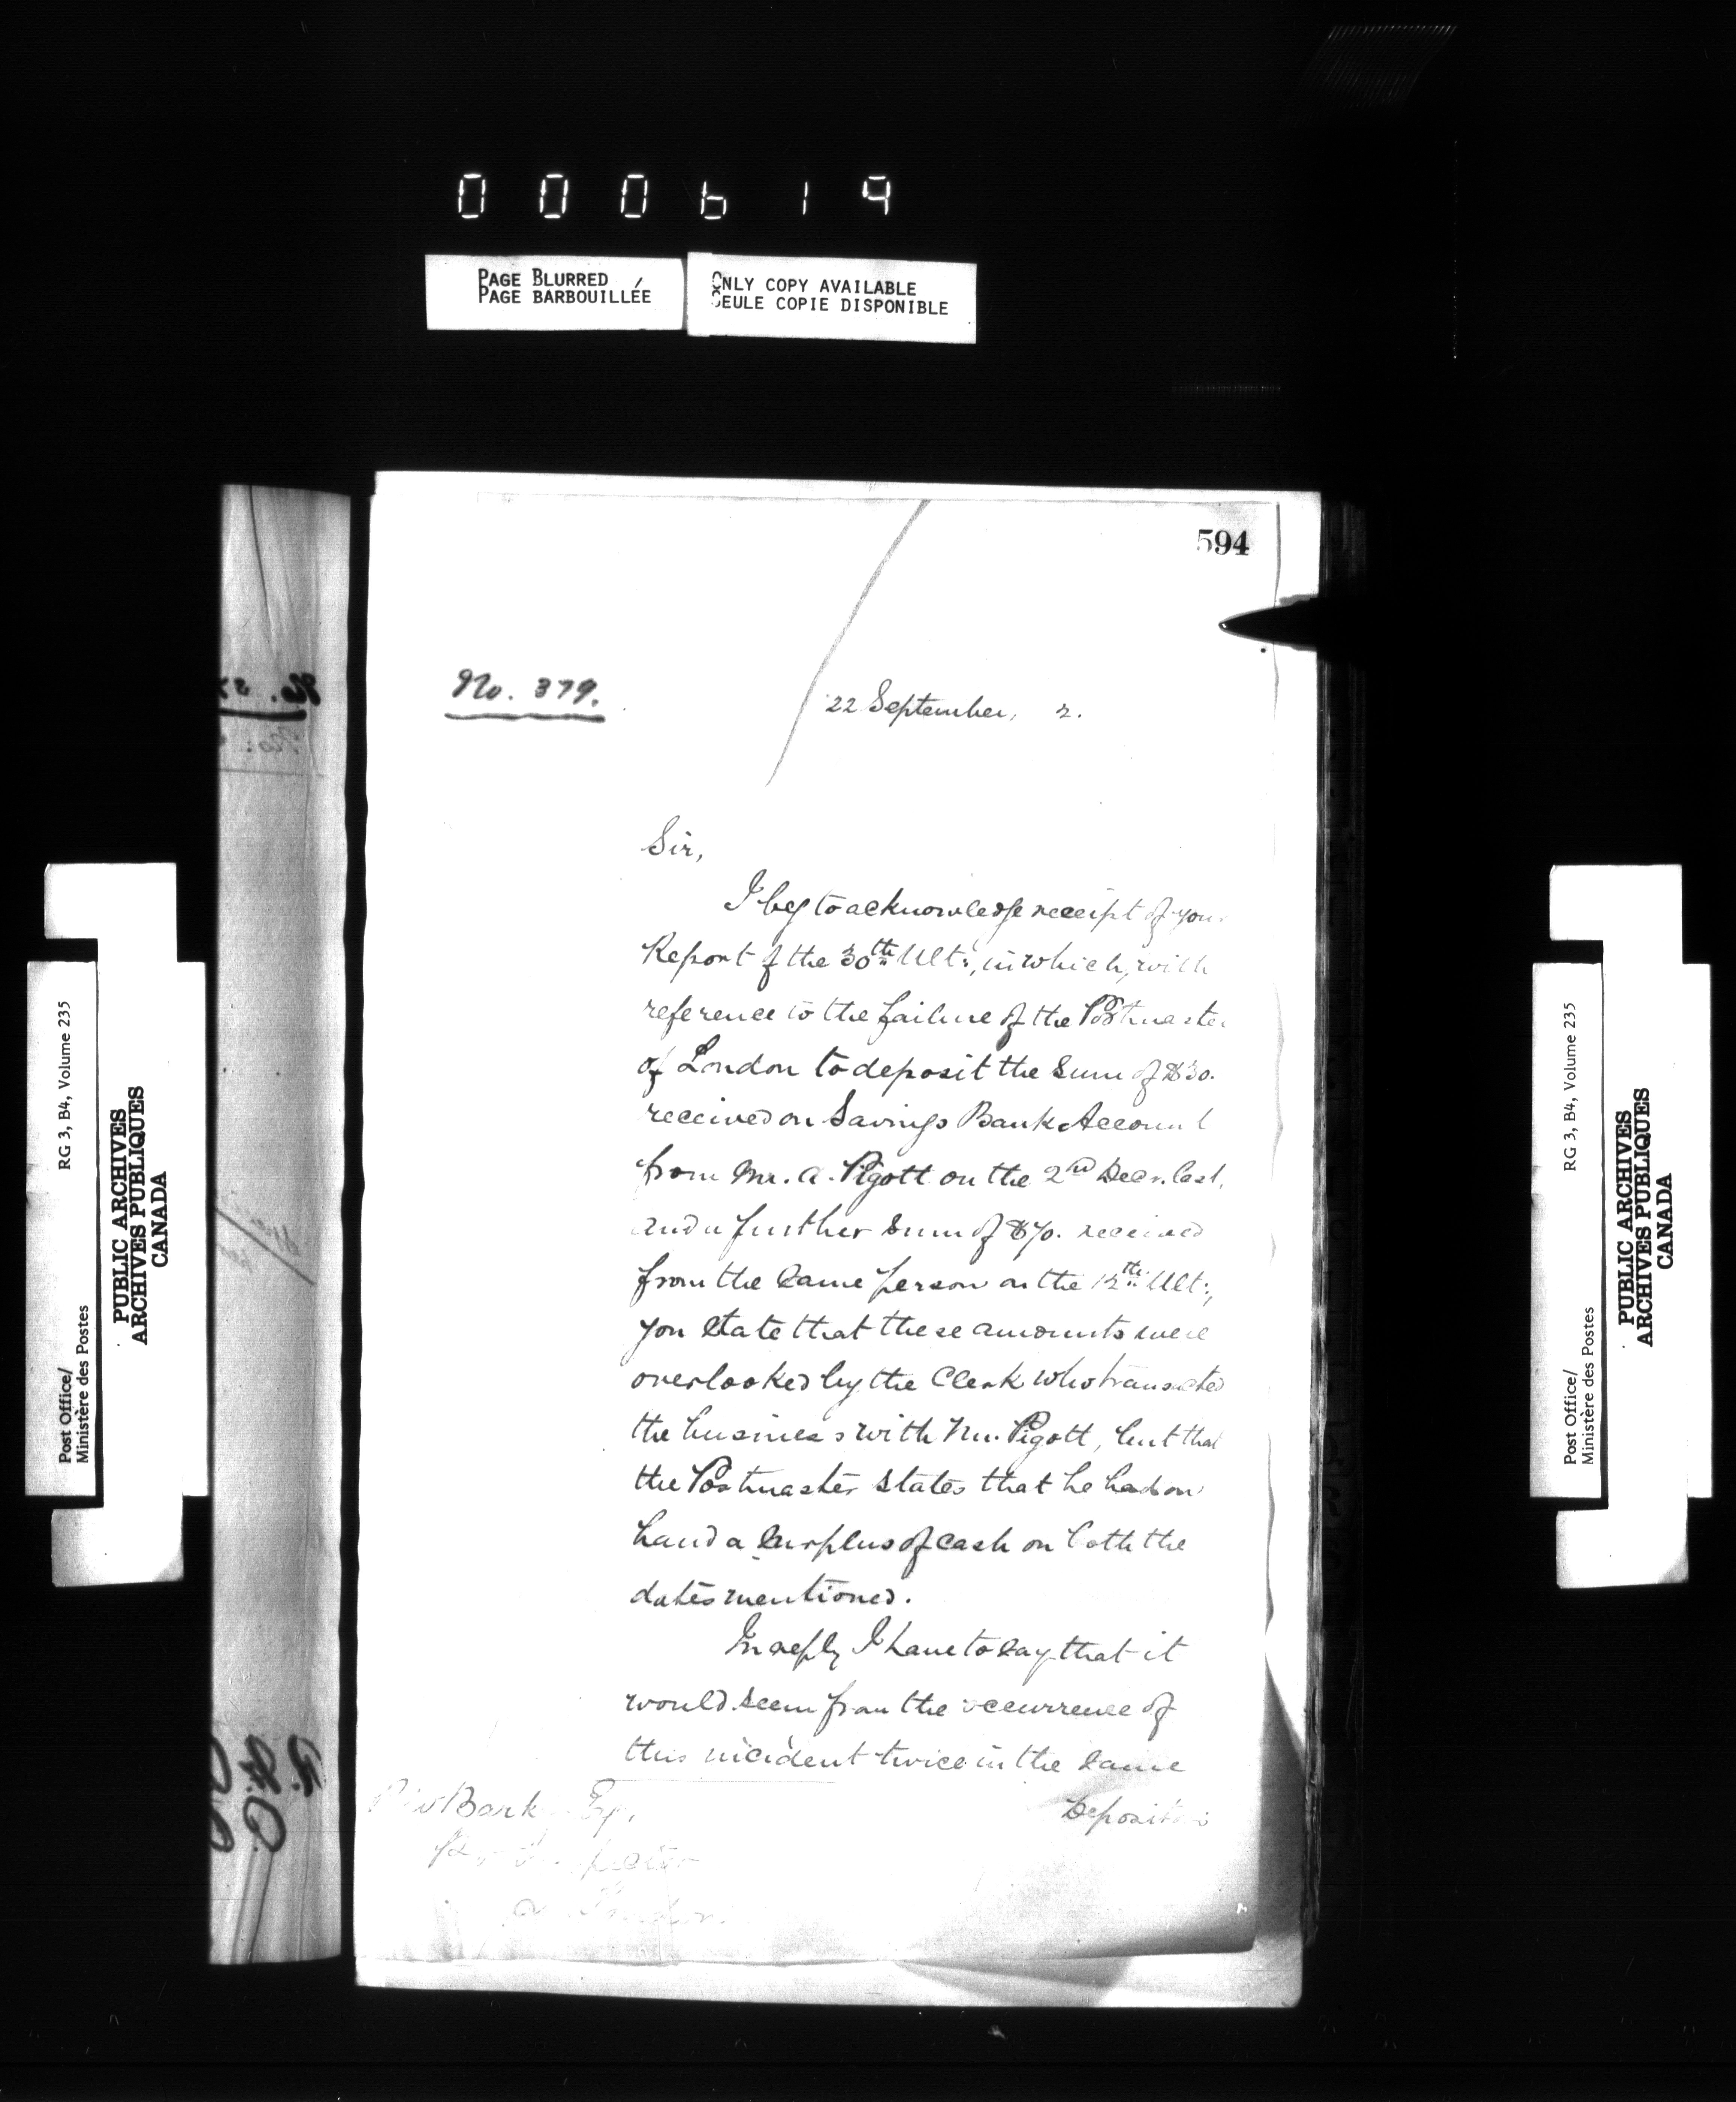 000619
PAGE BLURRED
PAGE BARBOUILLÉE
ONLY COPY AVAILABLE
SEULE COPIE DISPONIBLE
594
No. 379.
22 September, 2.
Sir,
I beg to acknowledge receipt of your
Report of the 30th Ult:, in which, with
reference to the failure of the Postmaster
of London to deposit the Sum of $30.
received on Savings Bank Account
from Mr. A. Pigott on the 2nd Decr. last,
and a further Sum of $70. received
from the Same person on the 12th Ult:,
you State that these amounts were
overlooked by the Clerk who transacted
the business with Mr. Pigott, but that
the Postmaster States that he had on
hand a Surplus of Cash on both the
dates mentioned.
In reply I have to say that it
would seem from the occurrence of
this incident twice in the Same
Depositor's
Barker Esq.
London.
Post Office/
Ministère des Postes
RG 3, B4, Volume 235
PUBLIC ARCHIVES
ARCHIVES PUBLIQUES
CANADA
Post Office/
Ministère des Postes
RG 3, B4, Volume 235
PUBLIC ARCHIVES
ARCHIVES PUBLIQUES
CANADA